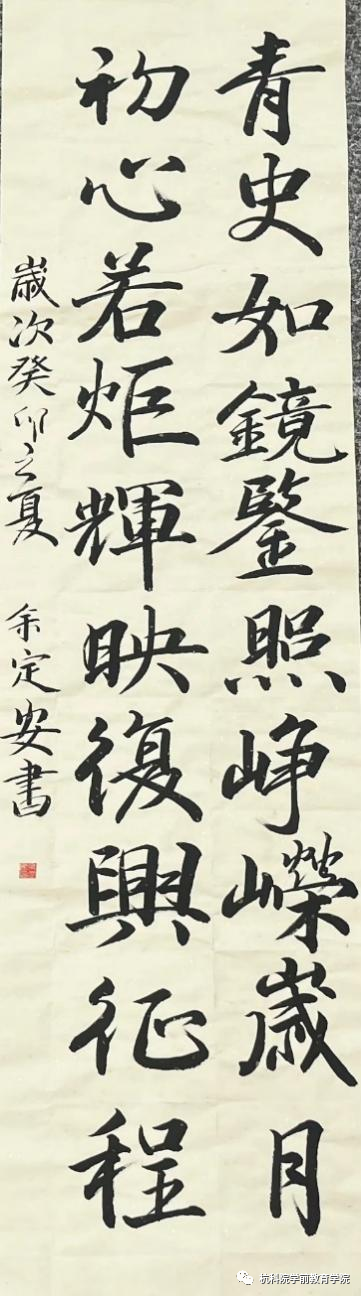 青史如鏡鑒照峥嶸歲月
初心若炬輝映復興征程
歲次癸卯之夏 余定安書
杭科院学前教育学院